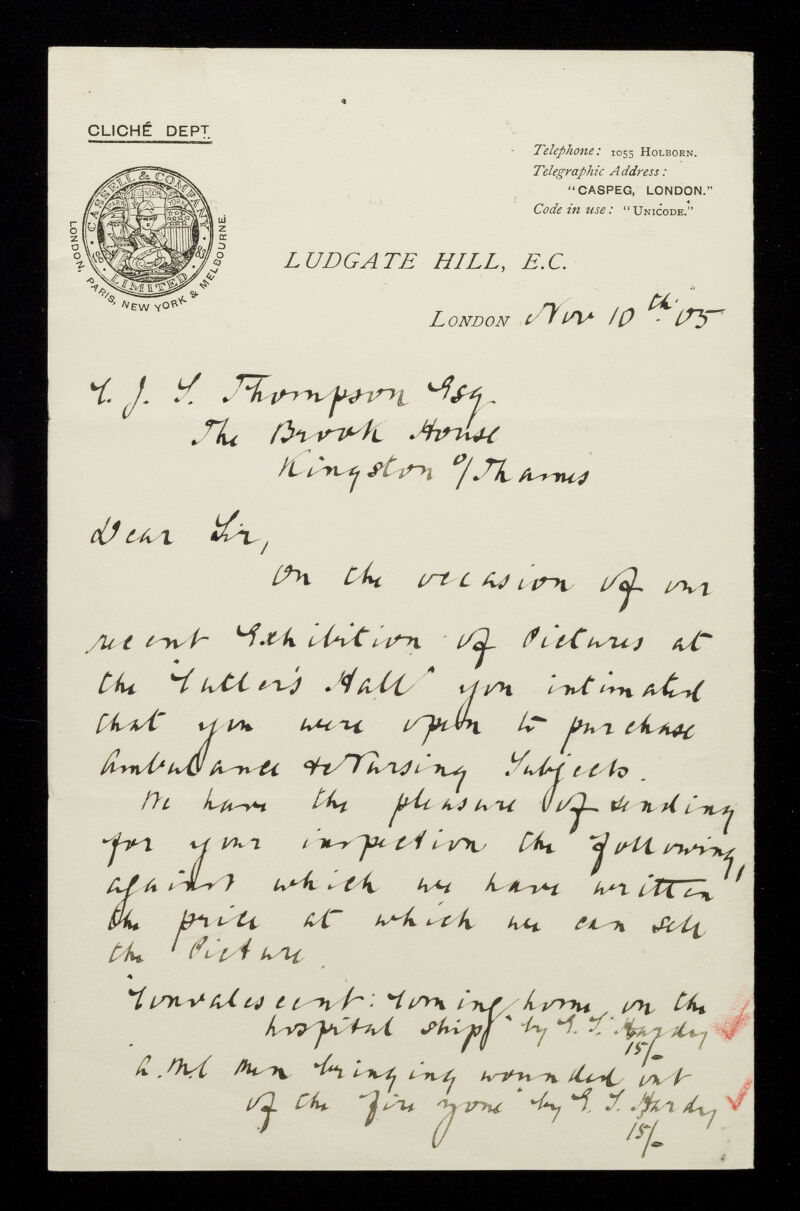 CLICHÉ DEPT.
CASSELL & COMPANY
LIMITED
LONDON, PARIS, NEW YORK & MELBOURNE.
Telephone: 1055 HOLBORN.
Telegraphic Address:
"CASPEG, LONDON."
Code in use: "UNICODE."
LUDGATE HILL, E.C.
LONDON Nov 10th 05
C. J. S. Thompson Esq.
The Brook House
Kingston o/Thames
Dear Sir,
On the occasion of our
recent Exhibition of Pictures at
the "Cutler's Hall" you intimated
that you were open to purchase
Ambulance & Nursing Subjects.
We have the pleasure of sending
for your inspection the following,
against which we have written
the price at which we can sell
the Picture.
"Convalescent: Coming home on the
hospital ship" by E. S. Hardy
15/-
A.M.C Men bringing wounded out
of the fire zone" by E. S. Hardy
15/-